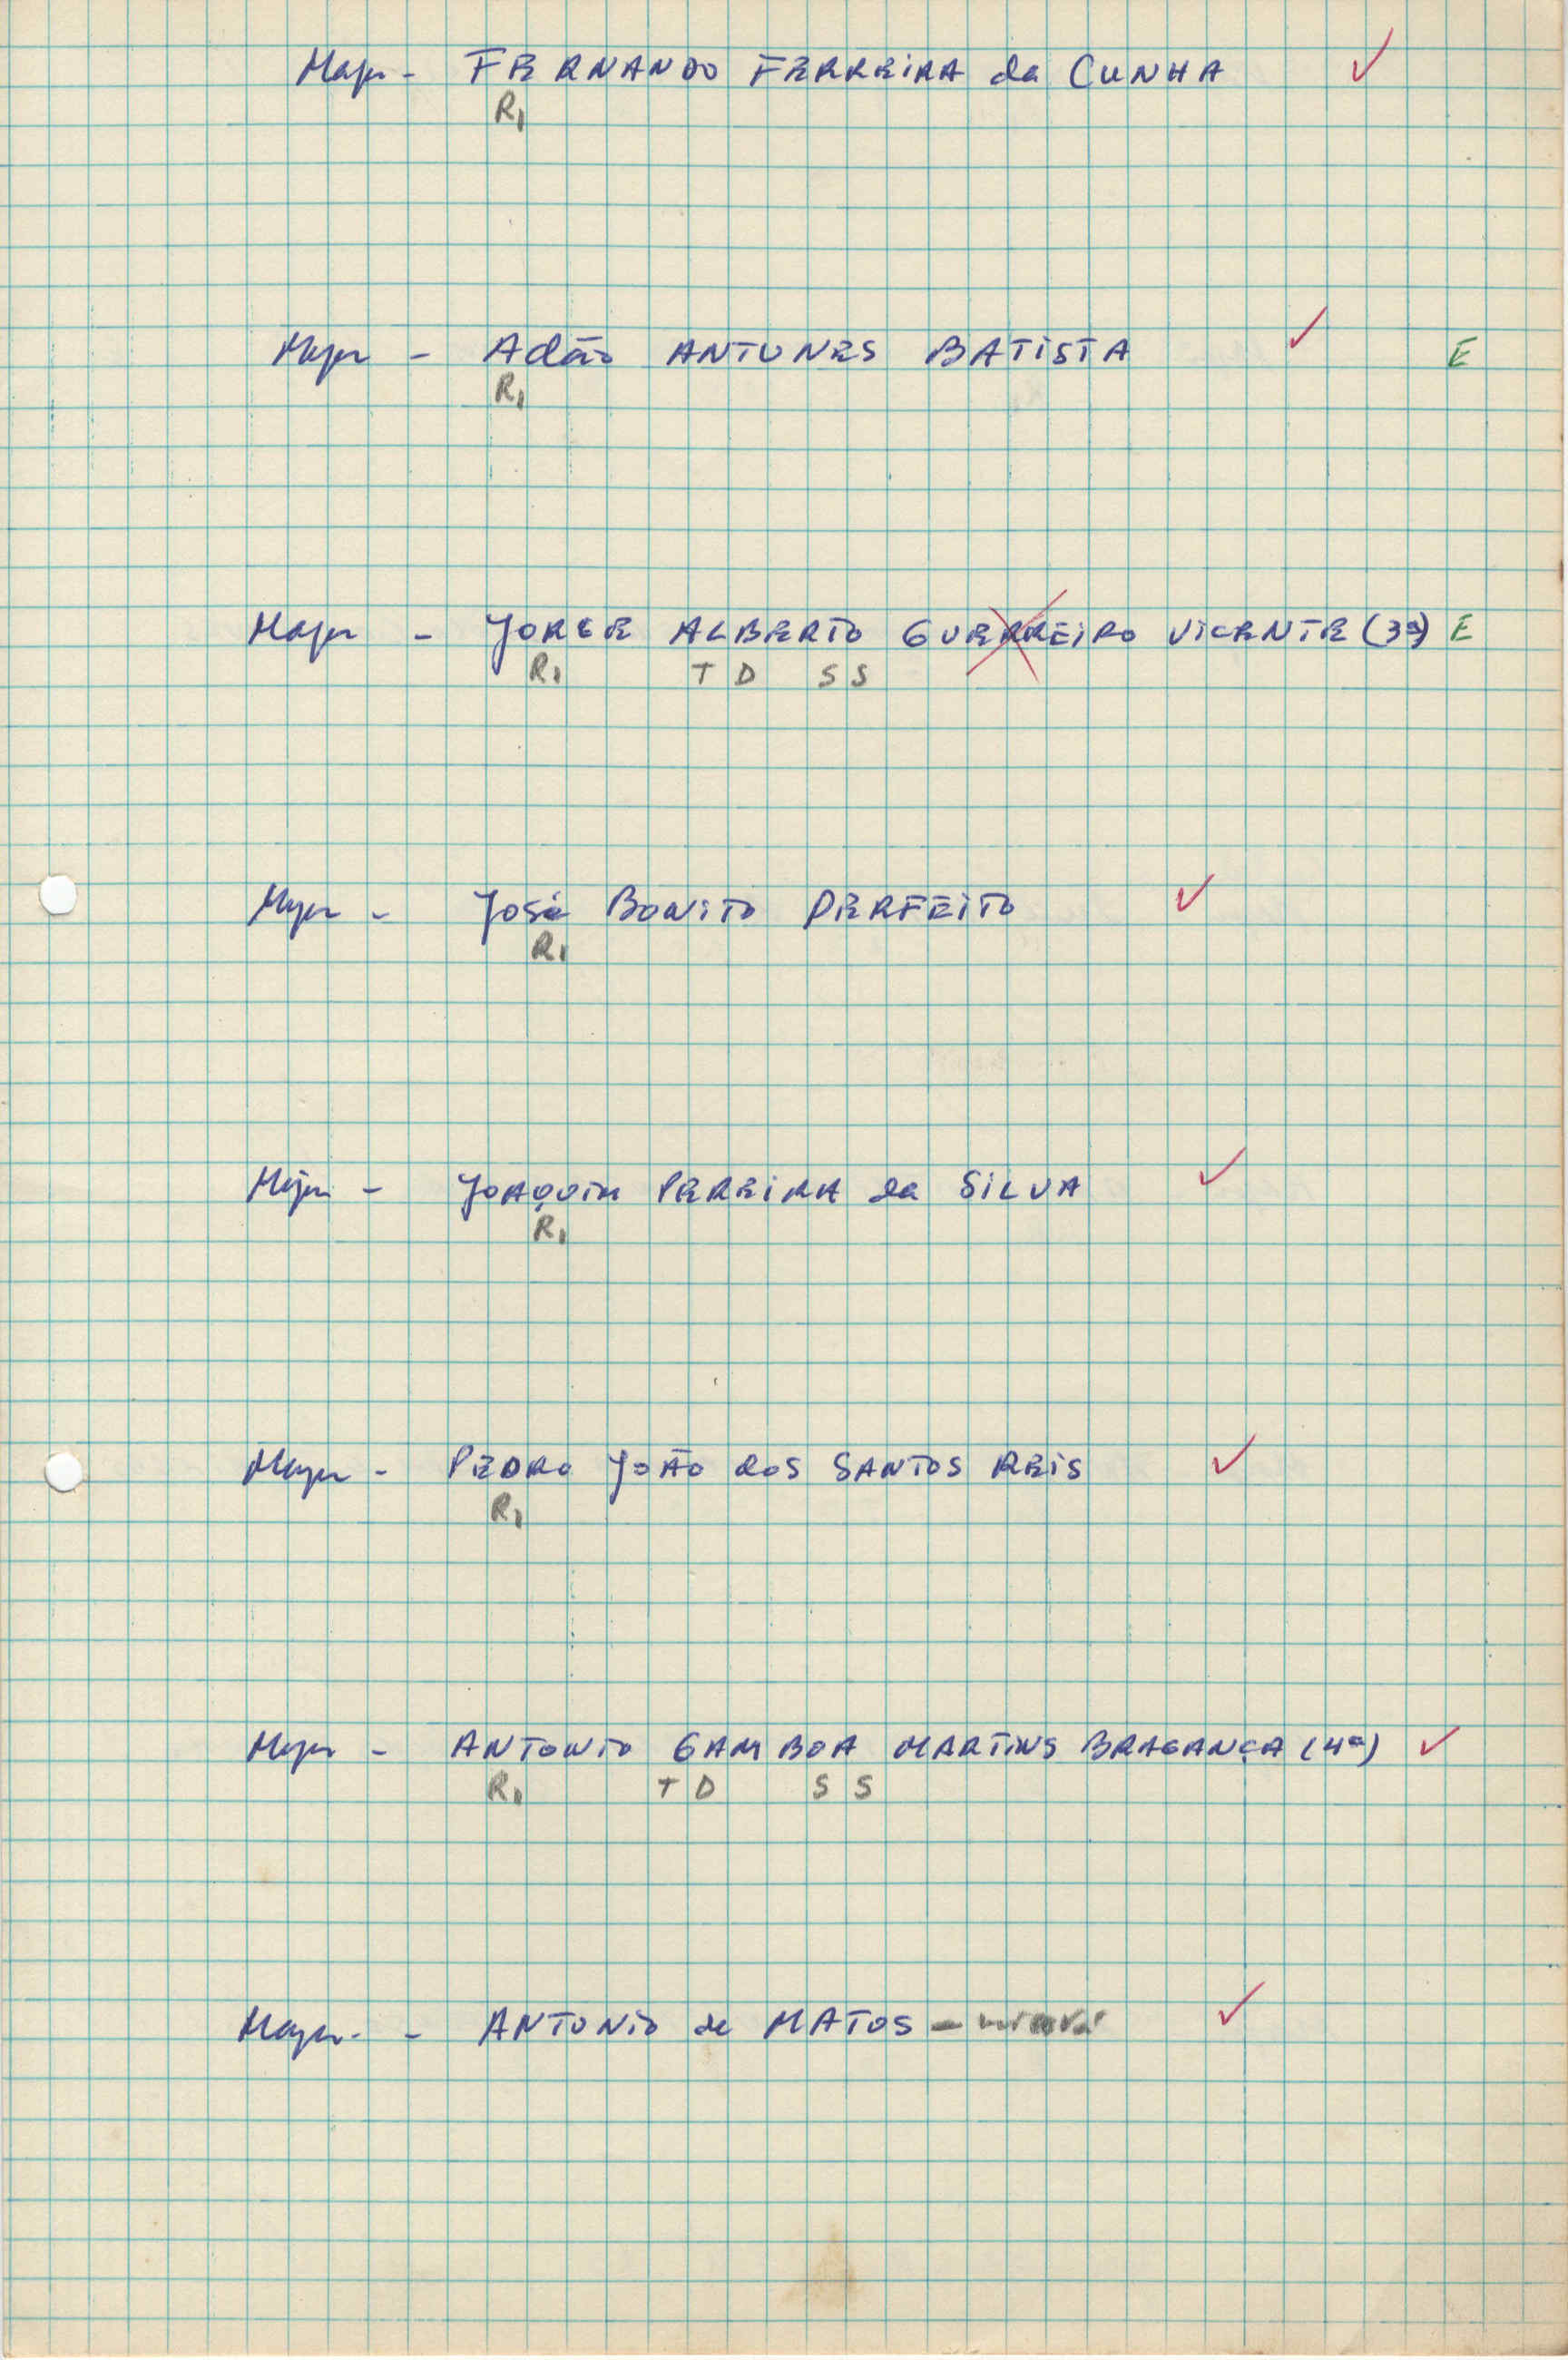 Major - FERNANDO FERREIRA da CUNHA ✓
R1
Major - Adão ANTUNES BATISTA ✓ E
R1
Major - JORGE ALBERTO GUERREIRO VICENTE (3º) E
R1 T D S S
Major - José BONITO PERFEITO ✓
R1
Major - JOAQUIM PEREIRA da SILVA ✓
R1
Major - PEDRO JOÃO dos SANTOS REIS ✓
R1
Major - ANTONIO GAMBOA MARTINS BRAGANÇA (4º) ✓
R1 T D S S
Major - ANTONIO de MATOS - ✓